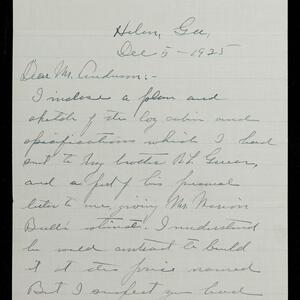 Helen, Ga,
Dec 5 - 1925
Dear Mr. Anderson:-
I inclose a plan and
sketch of the log cabin and
specifications which I had
sent to my brother
and a part of his personal
letter to me, giving Mr. Marion
estimate. I understand
he would contract to build
it at the price named
But I suspect you had